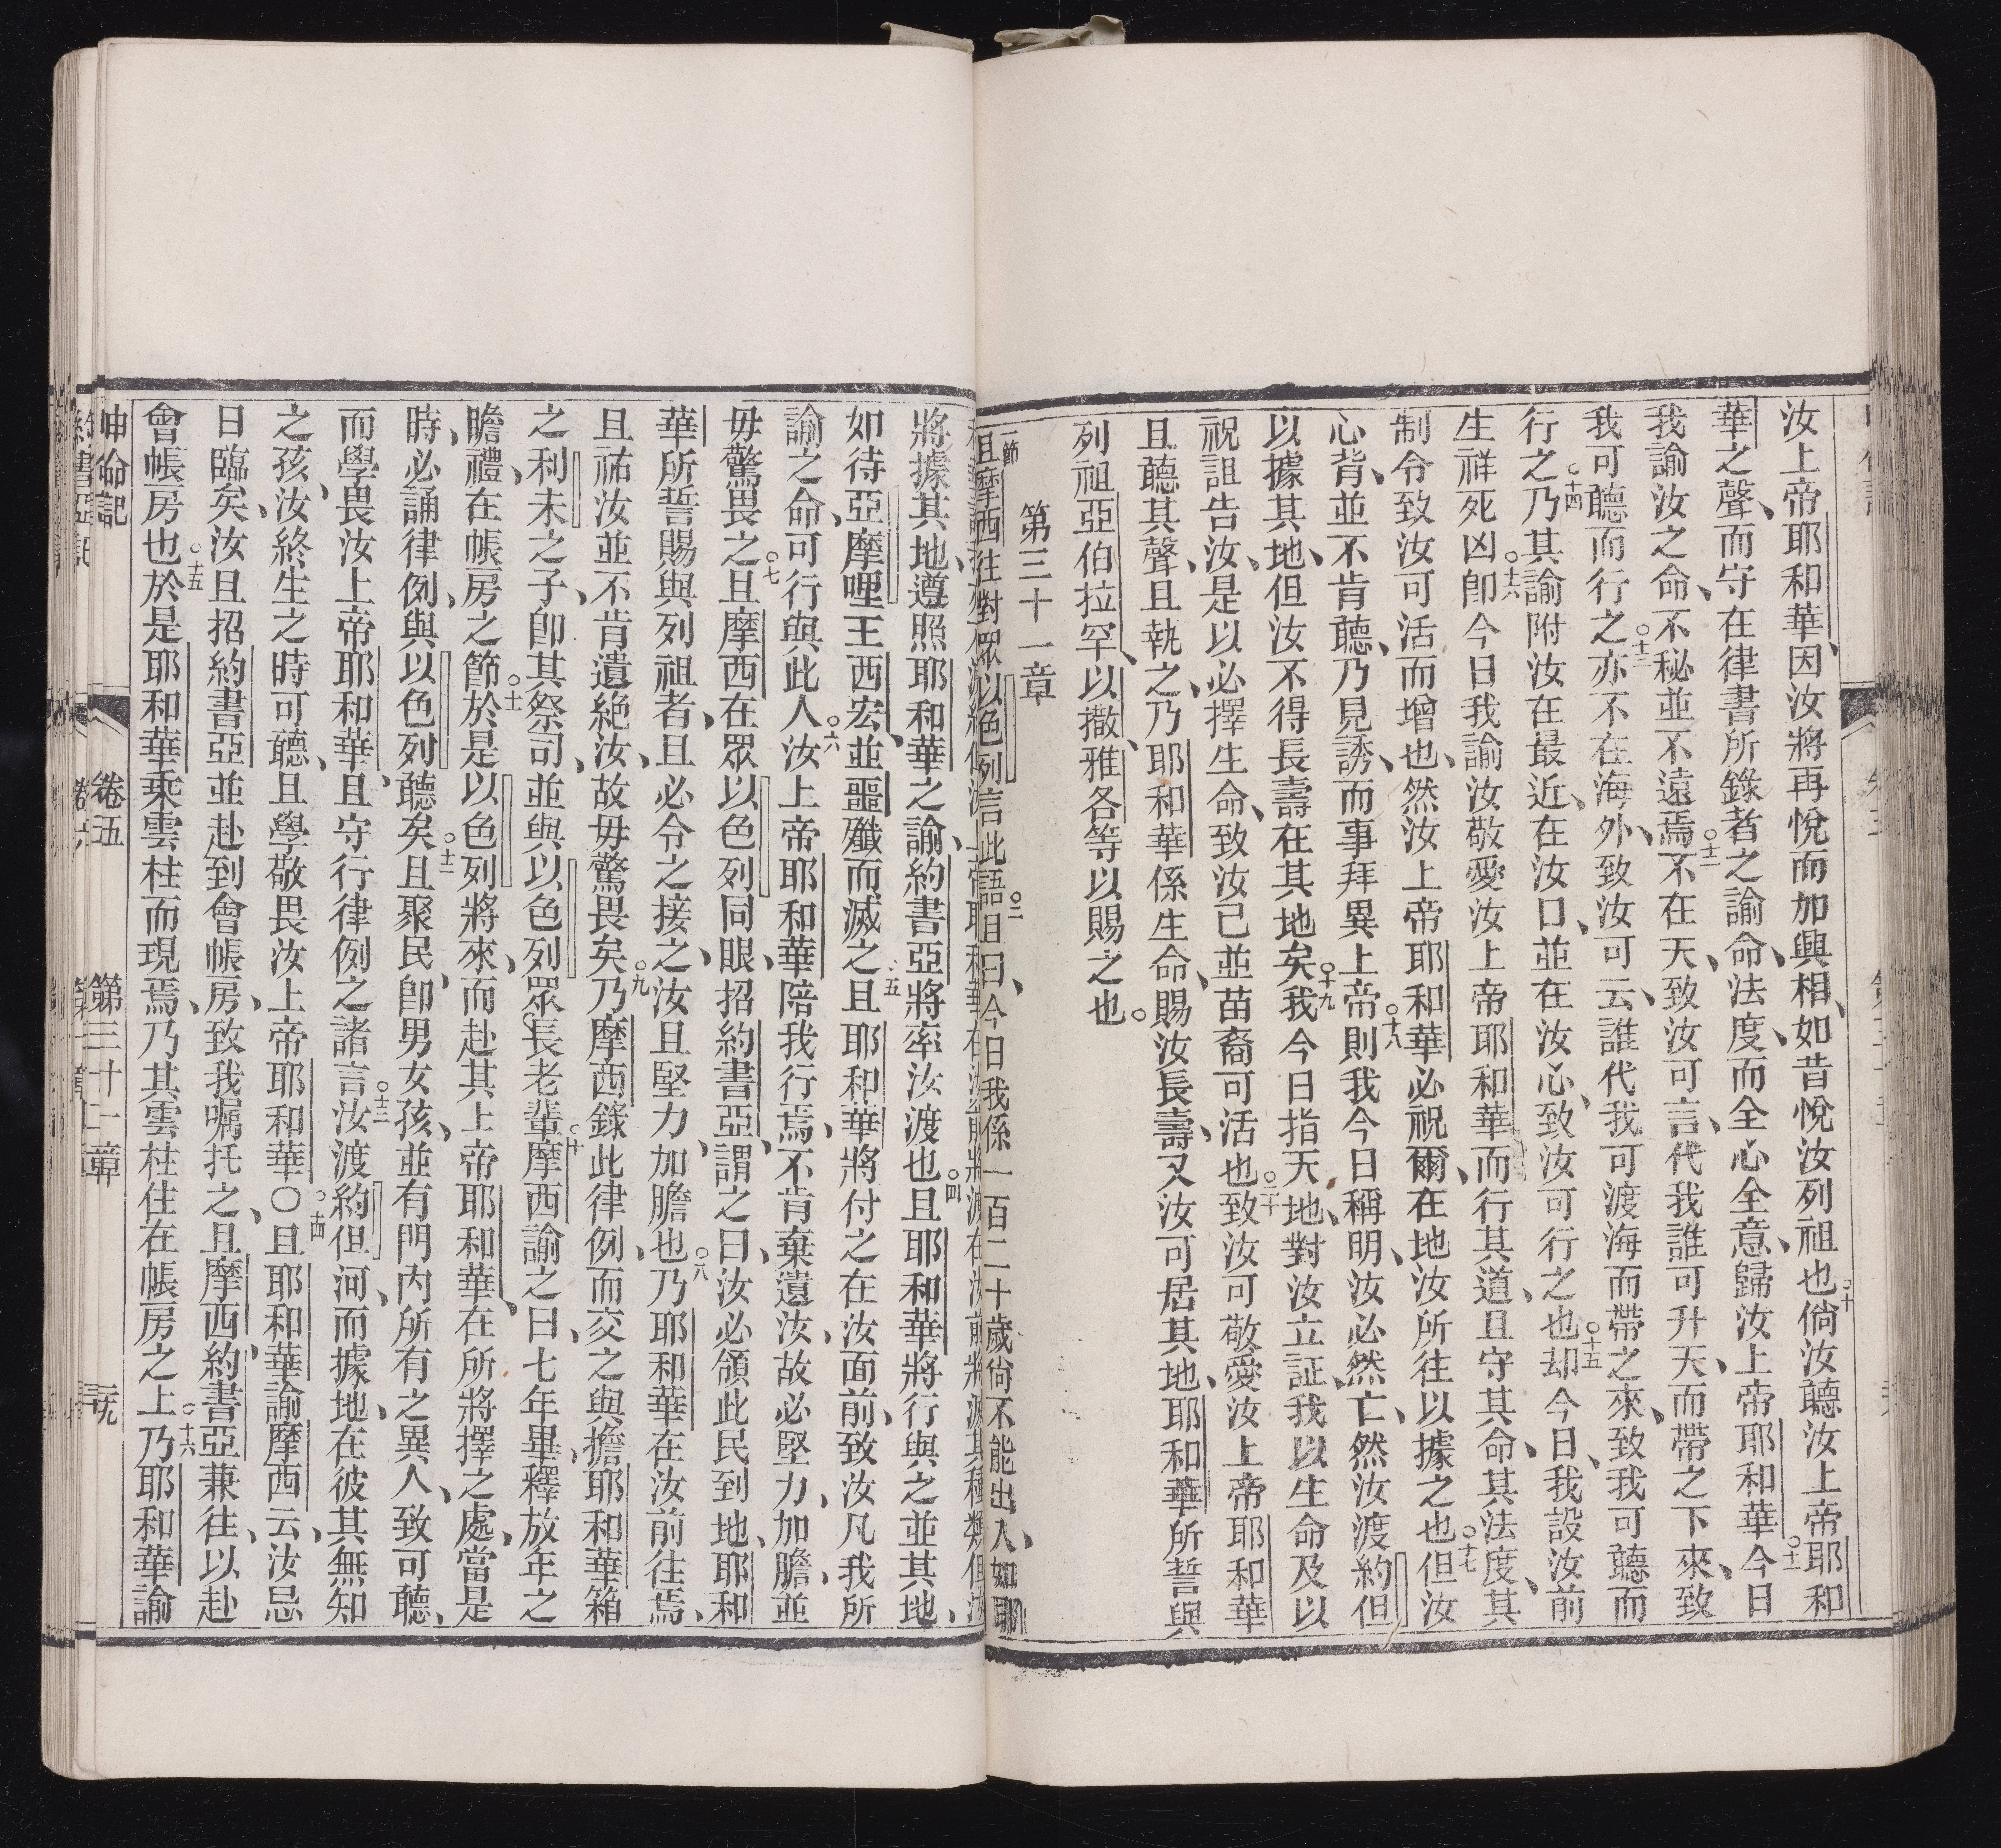 汝上帝耶和華、因汝將再悅而加興相、如昔悅汝列祖也○十倘汝聽汝上帝耶和
華之聲、而守在律書所錄者之諭命、法度、而全心全意、歸汝上帝耶和華○十一今日
我諭汝之命、不秘並不遠焉○十二不在天、致汝可言、代我誰可升天、而帶之下來、致
我可聽而行之○十三亦不在海外、致汝可云、誰代我可渡海而帶之來、致我可聽而
行之○十四乃其諭附汝在最近、在汝口、並在汝心、致汝可行之也○十五却今日、我設汝前
生祥死凶○十六卽今日我諭汝敬愛汝上帝耶和華而行其道、且守其命、其法度、其
制令致汝可活而增也、然汝上帝耶和華必祝爾、在地汝所往以據之也○十七但汝
心背、並不肯聽、乃見誘、而事拜異上帝○十八則我今日稱明、汝必然亡、然汝渡約但
以據其地、但汝不得長壽在其地矣○十九我今日指天地、對汝立証、我以生命及以
祝詛告汝、是以必擇生命、致汝己並苗裔可活也○二十致汝可敬愛汝上帝耶和華
且聽其聲、且執之、乃耶和華係生命、賜汝長壽、又汝可居其地、耶和華所誓與
列祖亞伯拉罕、以撒、雅各等以賜之也。
第三十一章
一節且摩西往對眾以色列言此語○二且曰、今日我係一百二十歲尚不能出入、如耶
將據其地、遵照耶和華之諭、約書亞將率汝渡也○四且耶和華將行與之並其地、
如待亞摩哩王西宏、並噩殲而滅之○五且耶和華將付之在汝面前、致汝凡我所
諭之命、可行與此人○六汝上帝耶和華陪我行焉、不肯棄遺汝、故必堅力、加膽、並
毋驚畏之○七且摩西在眾以色列同眼、招約書亞、謂之曰、汝必領此民到地、耶和
華所誓賜與列祖者、且必令之接之、汝且堅力、加膽也○八乃耶和華在汝前往焉、
且祐汝並不肯遺絕汝、故毋驚畏矣○九乃摩西錄此律例、而交之與擔耶和華箱
之利未之子、卽其祭司、並與以色列眾長老輩○十摩西諭之曰、七年畢、釋放年之
瞻禮、在帳房之節○十一於是以色列將來、而赴其上帝耶和華、在所將擇之處、當是
時、必誦律例、與以色列聽矣○十二且聚民、卽男女孩、並有門內所有之異人、致可聽、
而學畏汝上帝耶和華、且守行律例之諸言○十三汝渡約但河、而據地、在彼其無知
之孩、汝終生之時可聽、且學敬畏汝上帝耶和華○○十四且耶和華諭摩西云、汝忌
日臨矣、汝且招約書亞並赴到會帳房、致我囑托之、且摩西、約書亞兼往、以赴
會帳房也○十五於是耶和華乘雲柱而現焉、乃其雲柱住在帳房之上○十六乃耶和華諭
申命記 卷五 第三十一章